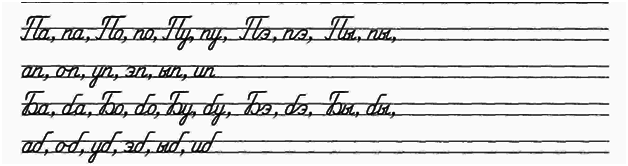 Па, па, По, по, Пу, пу, Пэ, пэ, Пы, пы,
ап, оп, уп, эп, ып, ип
Ба, ба, Бо, бо, Бу, бу, Бэ, бэ, Бы, бы,
аб, об, уб, эб, ыб, иб